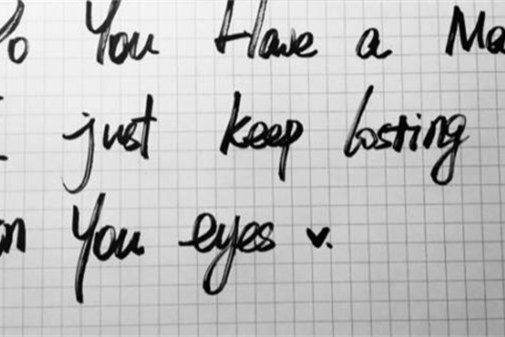 Do You Have a Ma
I just keep losting
on you eyes v.